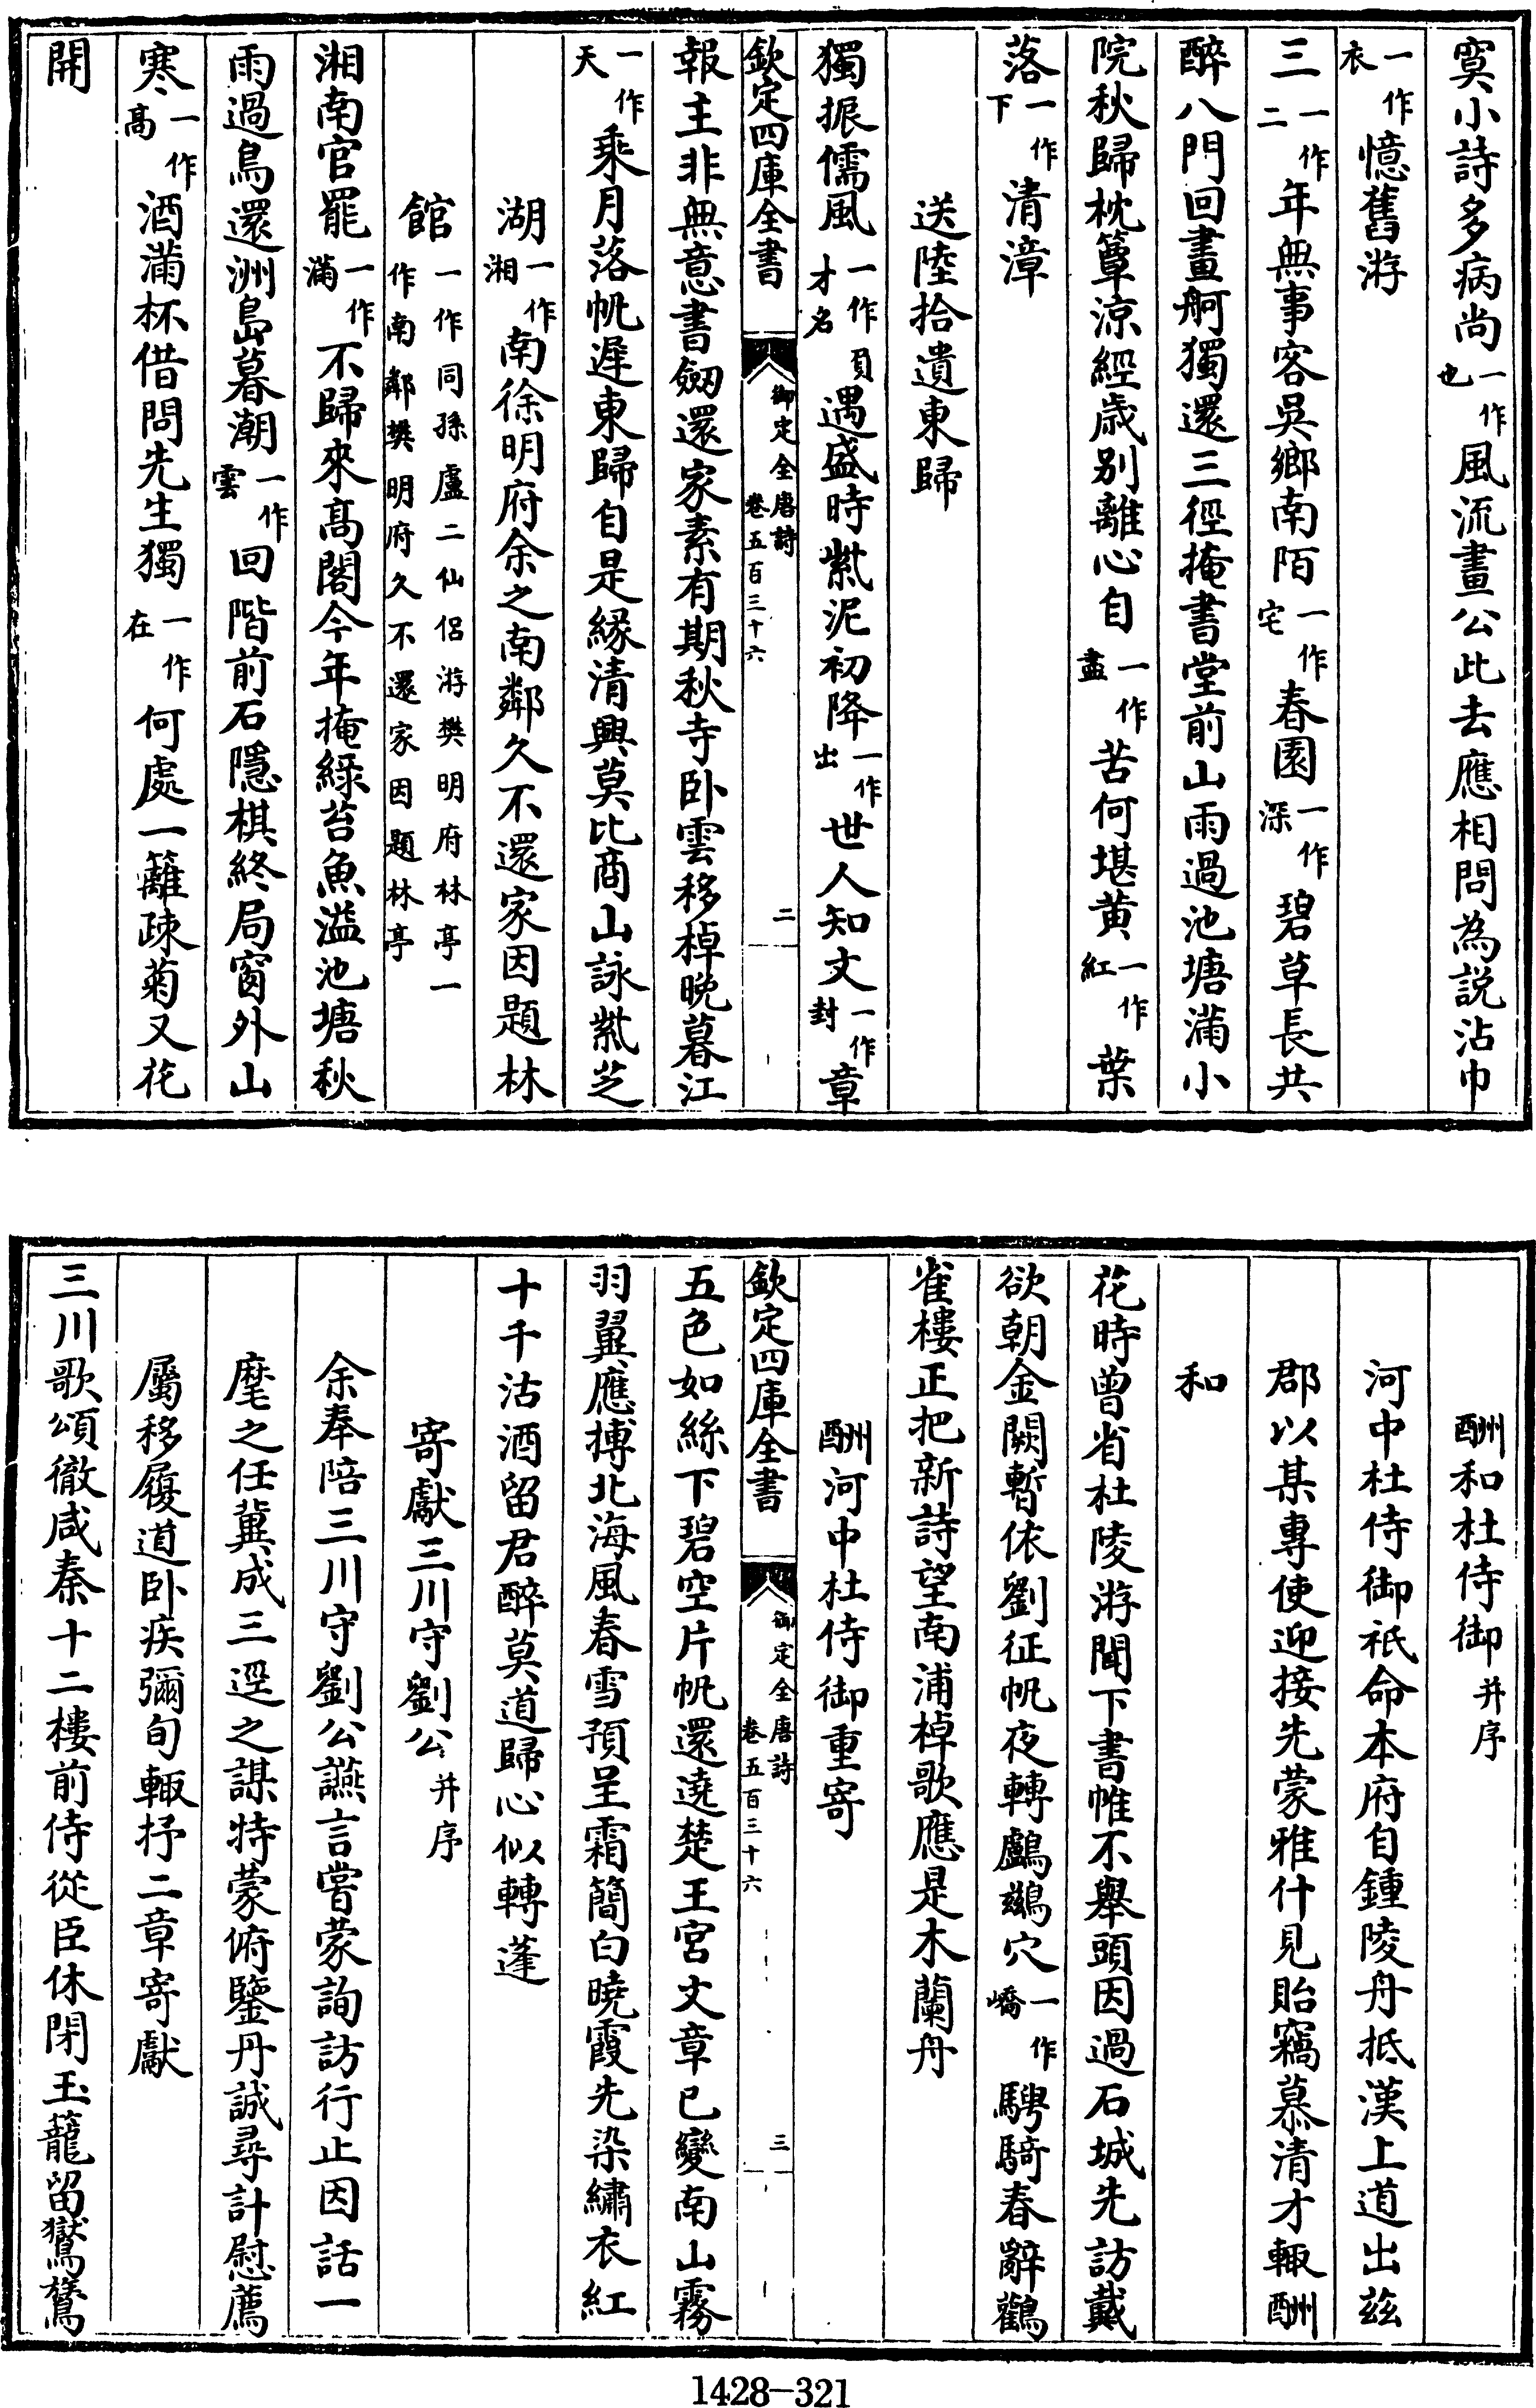 寞小詩多病尚一作也風流畫公此去應相問為説沾巾
一作衣憶舊游
三一作二年無事客吳鄉南陌一作宅春園一作深碧草長共
醉八門回畫舸獨還三徑掩書堂前山雨過池塘滿小
院秋歸枕簟涼經歲别離心自一作盡苦何堪黄一作紅葉
落一作下清漳
送陸拾遺東歸
獨振儒風一作才名負遇盛時紫泥初降一作出世人知文一作封章
欽定四庫全書 御定全唐詩 卷五百三十六 二
報主非無意書劔還家素有期秋寺卧雲移棹晩暮江
一作天乘月落帆遲東歸自是縁清興莫比商山詠紫芝
湖一作湘南徐明府余之南鄰久不還家因題林
館一作同孫盧二仙侣游樊明府林亭一作南鄰樊明府久不還家因題林亭
湘南官罷一作滿不歸來髙閣今年掩緑苔魚溢池塘秋
雨過鳥還洲島暮潮一作雲回階前石隱棋終局窗外山
寒一作髙酒滿杯借問先生獨一作在何處一籬疎菊又花
開
酬和杜侍御并序
河中杜侍御祗命本府自鍾陵舟抵漢上道出兹
郡以某專使迎接先蒙雅什見貽竊慕清才輒酬
和
花時曽省杜陵游聞下書帷不舉頭因過石城先訪戴
欲朝金闕暫依劉征帆夜轉鸕鷀穴一作嶠騁騎春辭鸛
雀樓正把新詩望南浦棹歌應是木蘭舟
酬河中杜侍御重寄
欽定四庫全書 御定全唐詩 卷五百三十六 三
五色如絲下碧空片帆還遶楚王宮文章已變南山霧
羽翼應摶北海風春雪預呈霜簡白曉霞先染繡衣紅
十千沽酒留君醉莫道歸心似轉蓬
寄獻三川守劉公并序
余奉陪三川守劉公讌言嘗蒙詢訪行止因話一
麾之任冀成三逕之謀特蒙俯鑒丹誠尋計慰薦
屬移履道卧疾彌旬輒抒二章寄獻
三川歌頌徹咸秦十二樓前侍從臣休閉玉籠留鸑鷟
1428-321